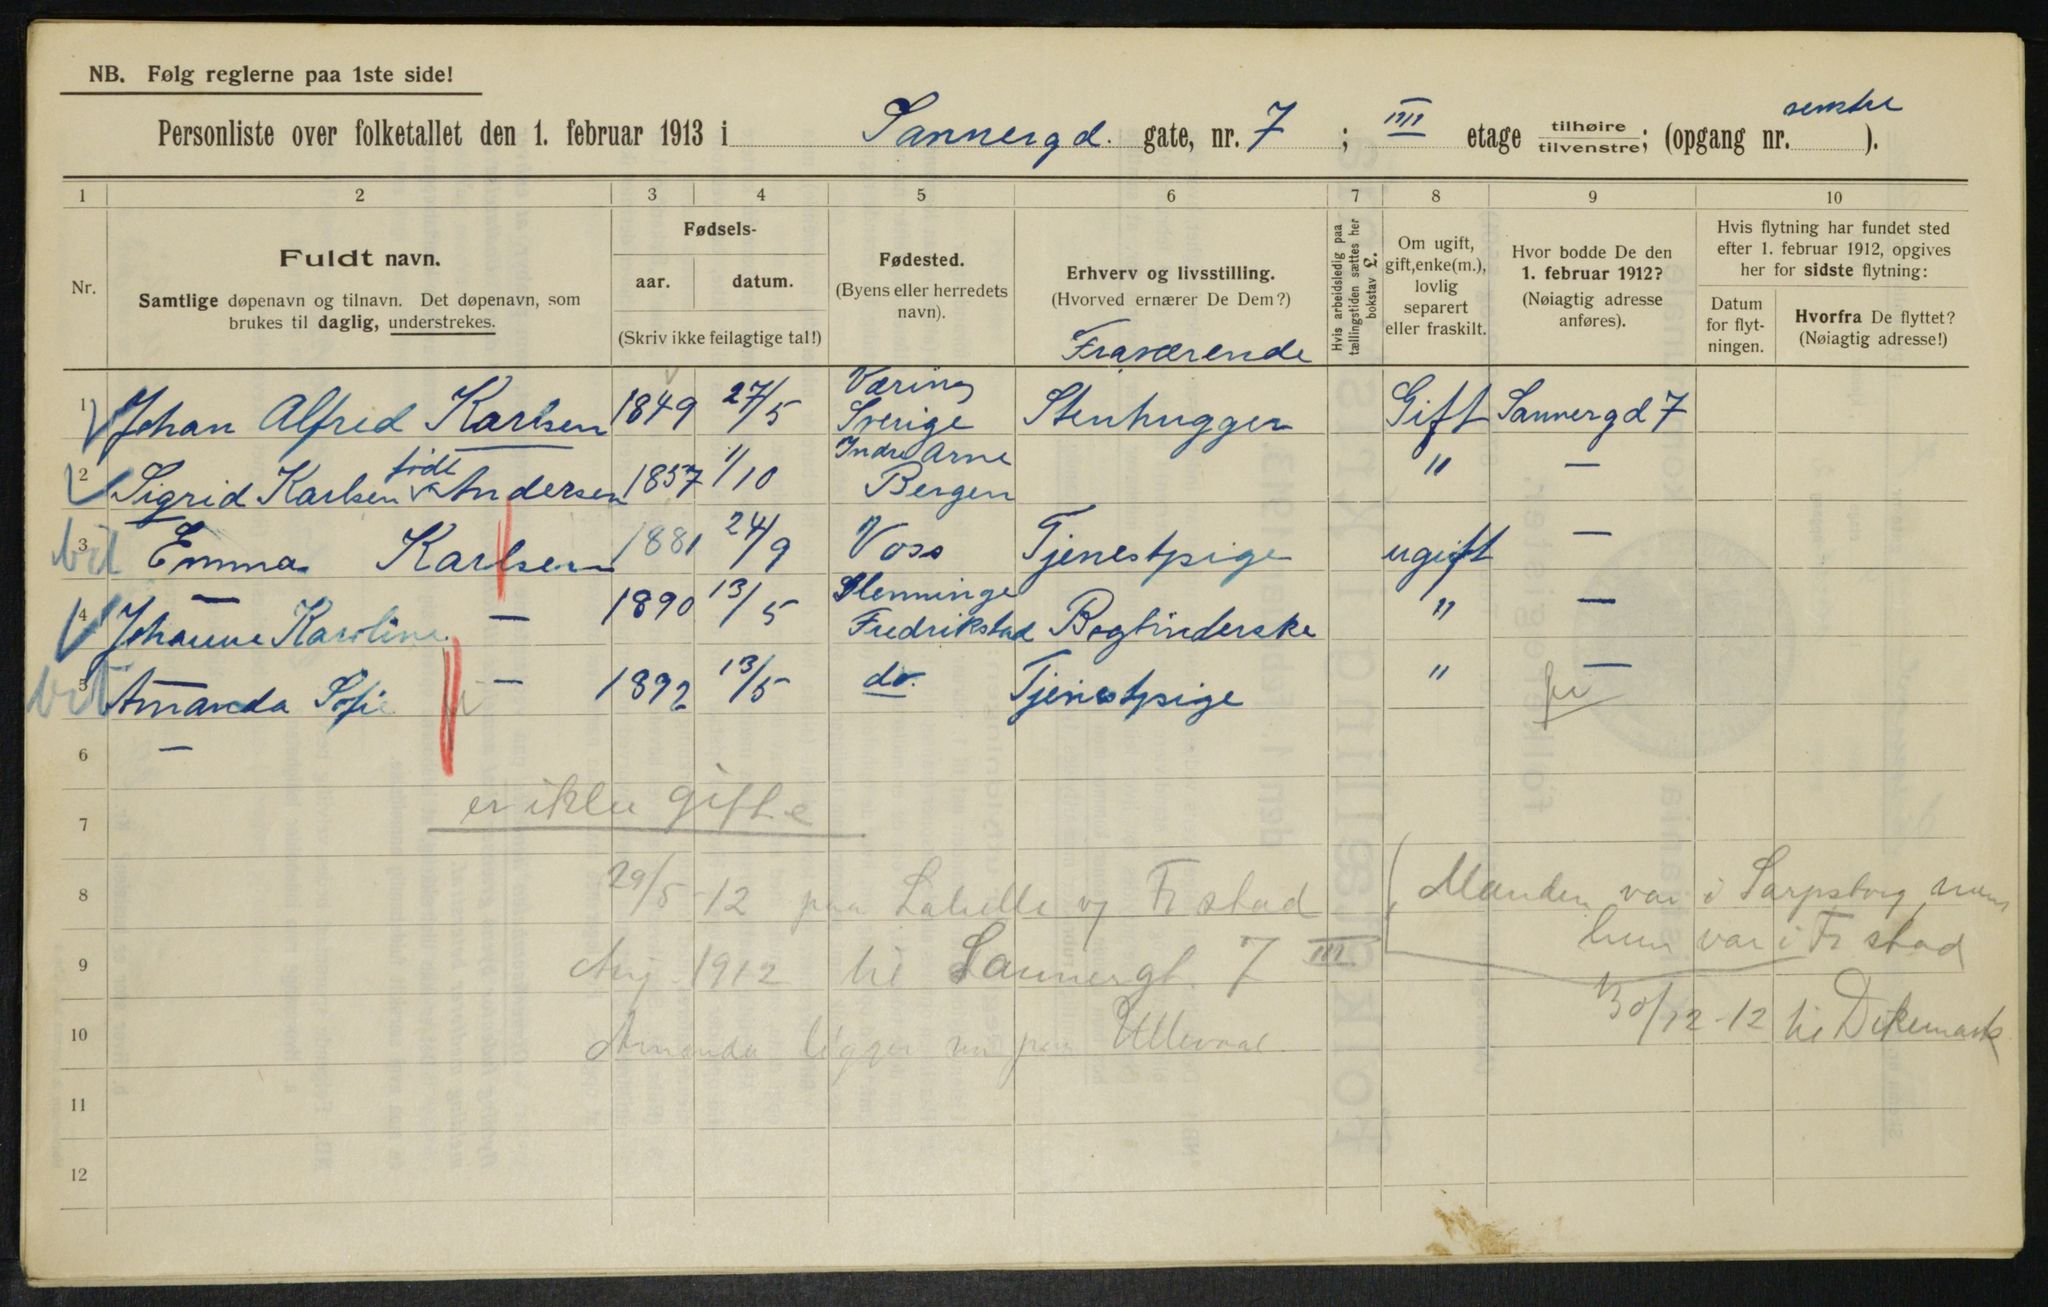 NB. Følg reglerne paa 1ste side!
Personliste over folketallet den 1. februar 1913 i Sannergd. gate, nr. 7 ; III etage tilhøire/tilvenstre; (opgang nr. venstre ).
1 2 3 4 5 6 7 8 9 10
Nr.
Fuldt navn.
Samtlige døpenavn og tilnavn. Det døpenavn, som
brukes til daglig, understrekes.
Fødsels-
aar. datum.
(Skriv ikke feilagtige tal!)
Fødested.
(Byens eller herredets
navn).
Erhverv og livsstilling.
(Hvorved ernærer De Dem?)
Fraværende
Hvis arbeidsledig paa
tællingstiden sættes her
bokstav L.
Om ugift,
gift, enke(m.),
lovlig
separert
eller fraskilt.
Hvor bodde De den
1. februar 1912?
(Nøiagtig adresse
anføres).
Hvis flytning har fundet sted
efter 1. februar 1912, opgives
her for sidste flytning:
Datum
for flyt-
ningen.
Hvorfra De flyttet?
(Nøiagtig adresse!)
1 Johan Alfred Karlsen 1849 27/5 Væring Sverige Stenhugger Gift Sannergd 7
2 Sigrid Karlsen født Andersen 1857 1/10 Indre Arne Bergen " —
3 Emma Karlsen 1881 24/9 Voss Tjenestpige ugift —
4 Johanne Karoline — 1890 13/5 Glemminge Fredrikstad Bogbinderske " —
5 Amanda Sofie — 1892 13/5 do. Tjenestpige " —
6 —
er ikke gifte
7
8 29/5-12 paa og Fr stad Manden var i Sarpsborg mens
hun var i Fr stad
9 Aug. 1912 til Sannergt. 7 III
30/12-12 til Dikemark
10 Amanda ligger nu paa Ullevaal
11
12